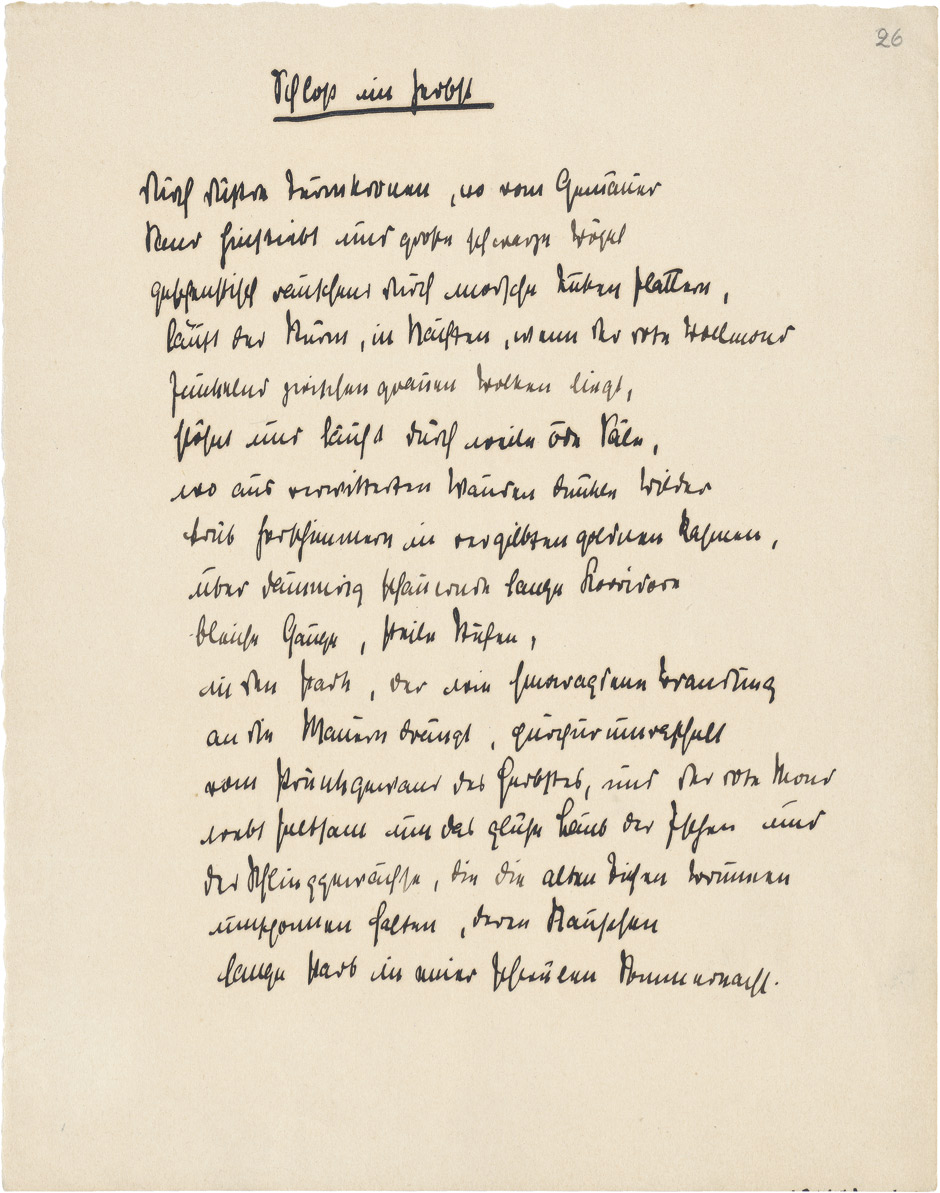 26
Schloß im Herbst
durch düstre Turmkronen, wo vom Gemäuer
hinstiebt und große schwarze Vögel
gespenstisch rauschend durch morsche Luken flattern,
läuft der Sturm, in Nächten, wenn der rote Vollmond
funkelnd zwischen grauen Wolken liegt,
stöhnt und läuft durch weite öde Säle,
wo aus verwitterten Wänden dunkle Bilder
trüb herschimmern in vergilbten goldnen Rahmen,
über dämmrig schauernde lange Korridore
bleiche Gänge, steile Stufen,
in den Park, der wie smaragdene Brandung
an die Mauern drängt,
vom Prunkgewand des Herbstes, und der rote Mond
webt seltsam um das glühe Laub der Eschen und
der Schlinggewächse, die die alten tiefen Brunnen
umsponnen halten, deren Rauschen
lange starb in einer schwülen Sommernacht.